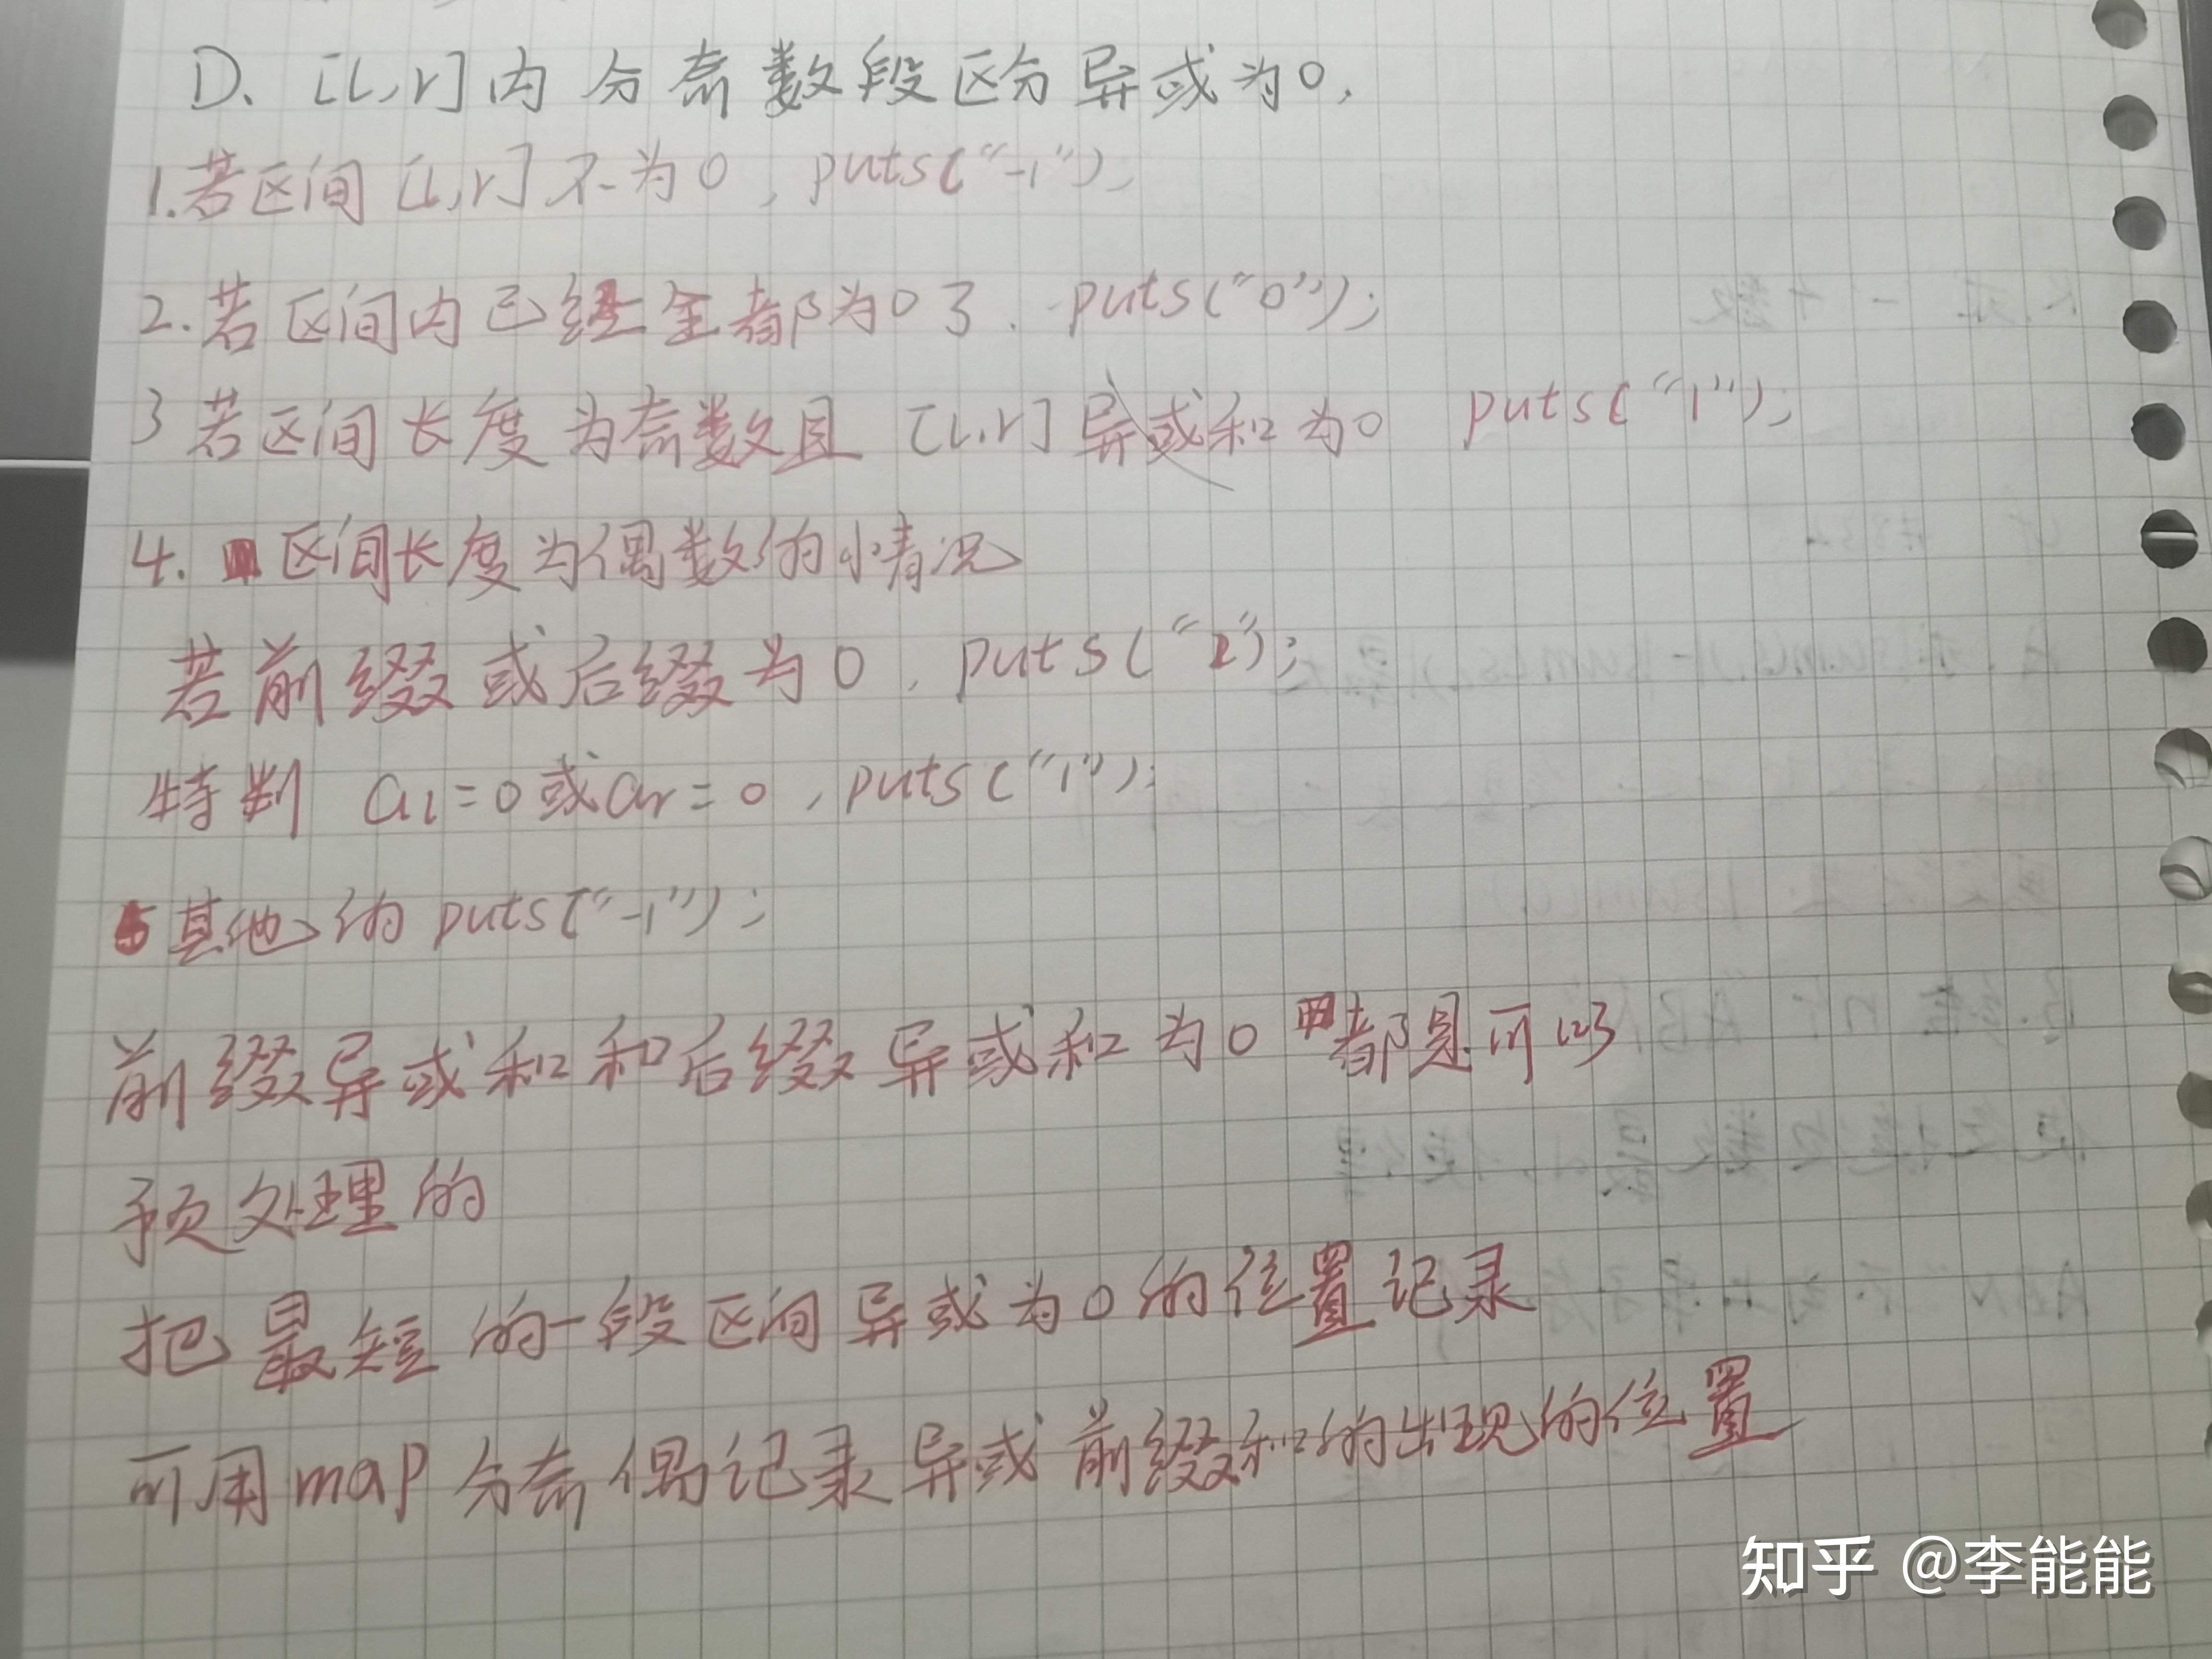 D、[l,r]内分奇数段区分异或为0,
1.若区间[l,r]不为0,puts("-1");
2.若区间内已经全都为0了.puts("0");
3若区间长度为奇数且[l,r]异或和为0 puts("1");
4.区间长度为偶数的情况
若前缀或后缀为0,puts("2");
特判 al=0或ar=0,puts("1");
5其他的puts("-1");
前缀异或和和后缀异或和为0都是可以
预处理的
把最短的一段区间异或为0的位置记录
可用map分奇偶记录异或前缀和的出现的位置
知乎 @李能能